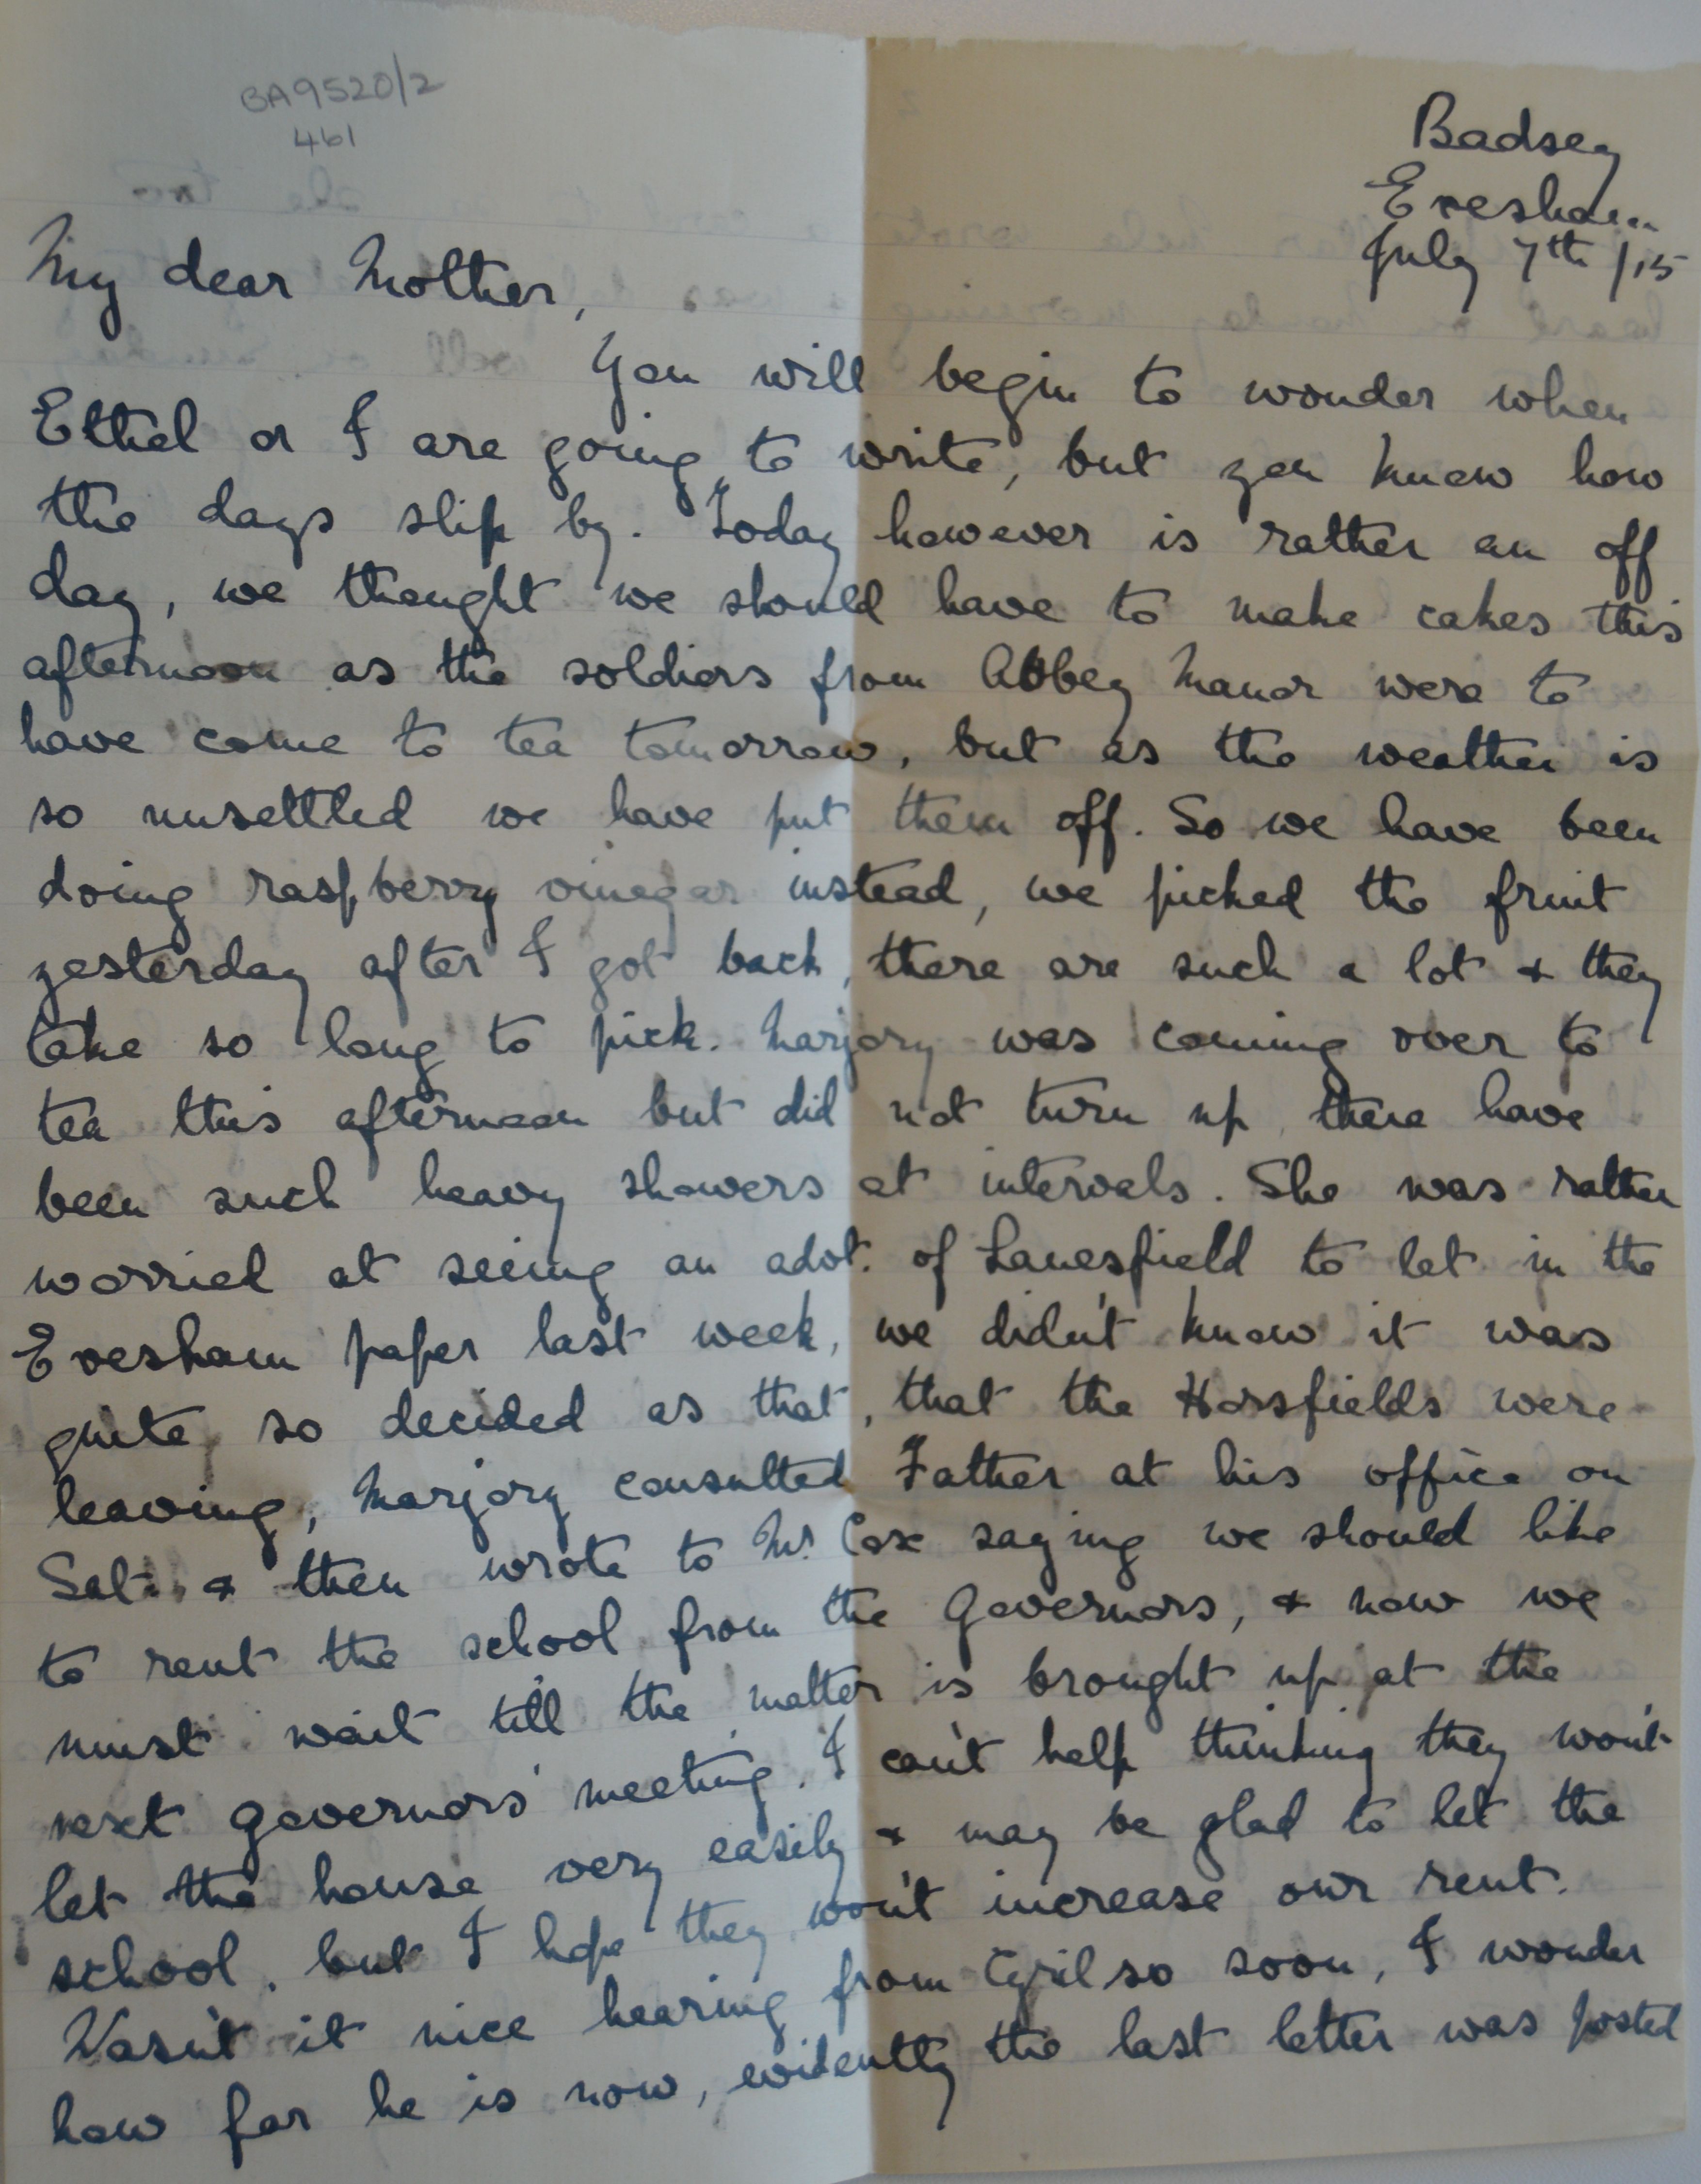 BA9520/2
461
Badsey
Evesham
July 7th /15
My dear Mother,
You will begin to wonder when
Ethel or I are going to write, but you know how
the days slip by. Today however is rather an off
day, we thought we should have to make cakes this
afternoon as the soldiers from Abbey Manor were to
have come to tea tomorrow, but as the weather is
so unsettled we have put them off. So we have been
doing raspberry vinegar instead, we picked the fruit
yesterday after I got back, there are such a lot & they
take so long to pick. Marjory was coming over to
tea this afternoon but did not turn up, there have
been such heavy showers at intervals. She was rather
worried at seeing an advt. of Lanesfield to let in the
Evesham paper last week, we didn't know it was
quite so decided as that, that the Horsfields were
leaving, Marjory consulted Father at his office on
Sat. & then wrote to Mr. Cox saying we should like
to rent the school from the Governors, & now we
must wait till the matter is brought up at the
next governors' meeting. I can't help thinking they won't
let the house very easily & may be glad to let the
school, but I hope they won't increase our rent.
Wasn't it nice hearing from Cyril so soon, I wonder
how far he is now, evidently the last letter was posted